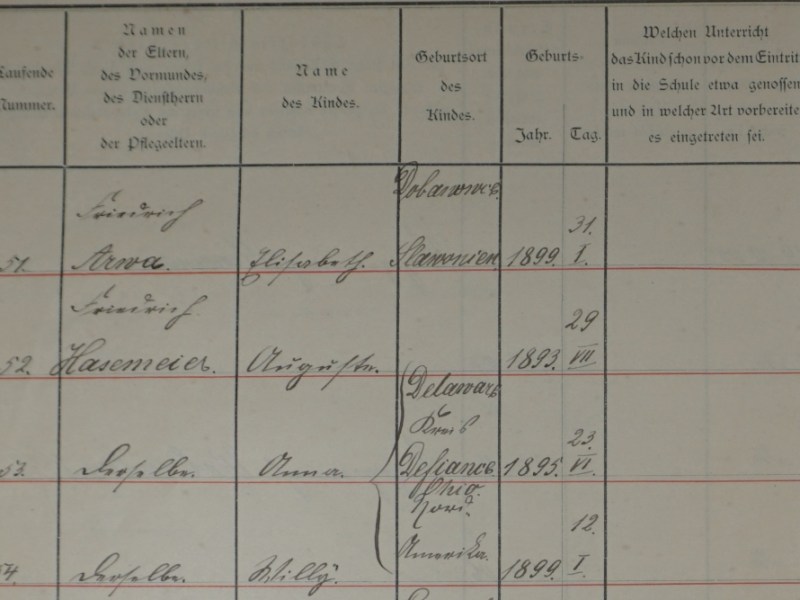 Laufende
Nummer.
Namen
der Eltern,
des Vormundes,
des Dienstherrn
oder
der Pflegeeltern.
Name
des Kindes.
Geburtsort
des
Kindes.
Geburts-
Jahr. Tag.
Welchen Unterricht
das Kind schon vor dem Eintrit
in die Schule etwa genossen
und in welcher Art vorbereite
es eingetreten sei.
51. Friedrich
Arwa. Elisabeth. Slawonien. 1899. 31.
I.
52. Friedrich
Hasemeier. Auguste. 1893. 29
VII
Delaware
Kreis
53. Derselbe. Anna. Defiance. 1895. 23.
VI.
Ohio.
Nord.
54. Derselbe. Willy. Amerika. 1899. 12.
I.